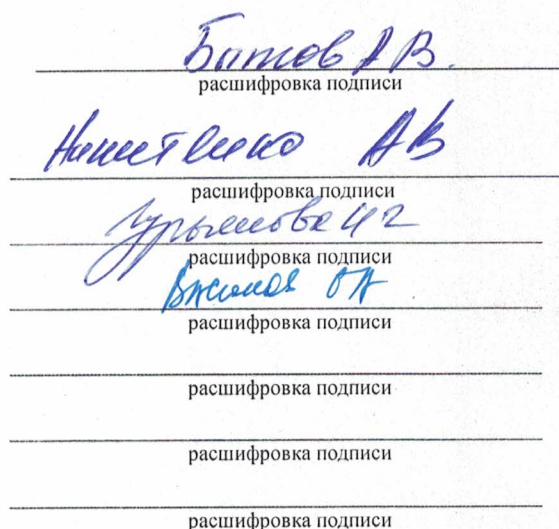 Батов А В.
расшифровка подписи
АВ
расшифровка подписи
расшифровка подписи
расшифровка подписи
расшифровка подписи
расшифровка подписи
расшифровка подписи